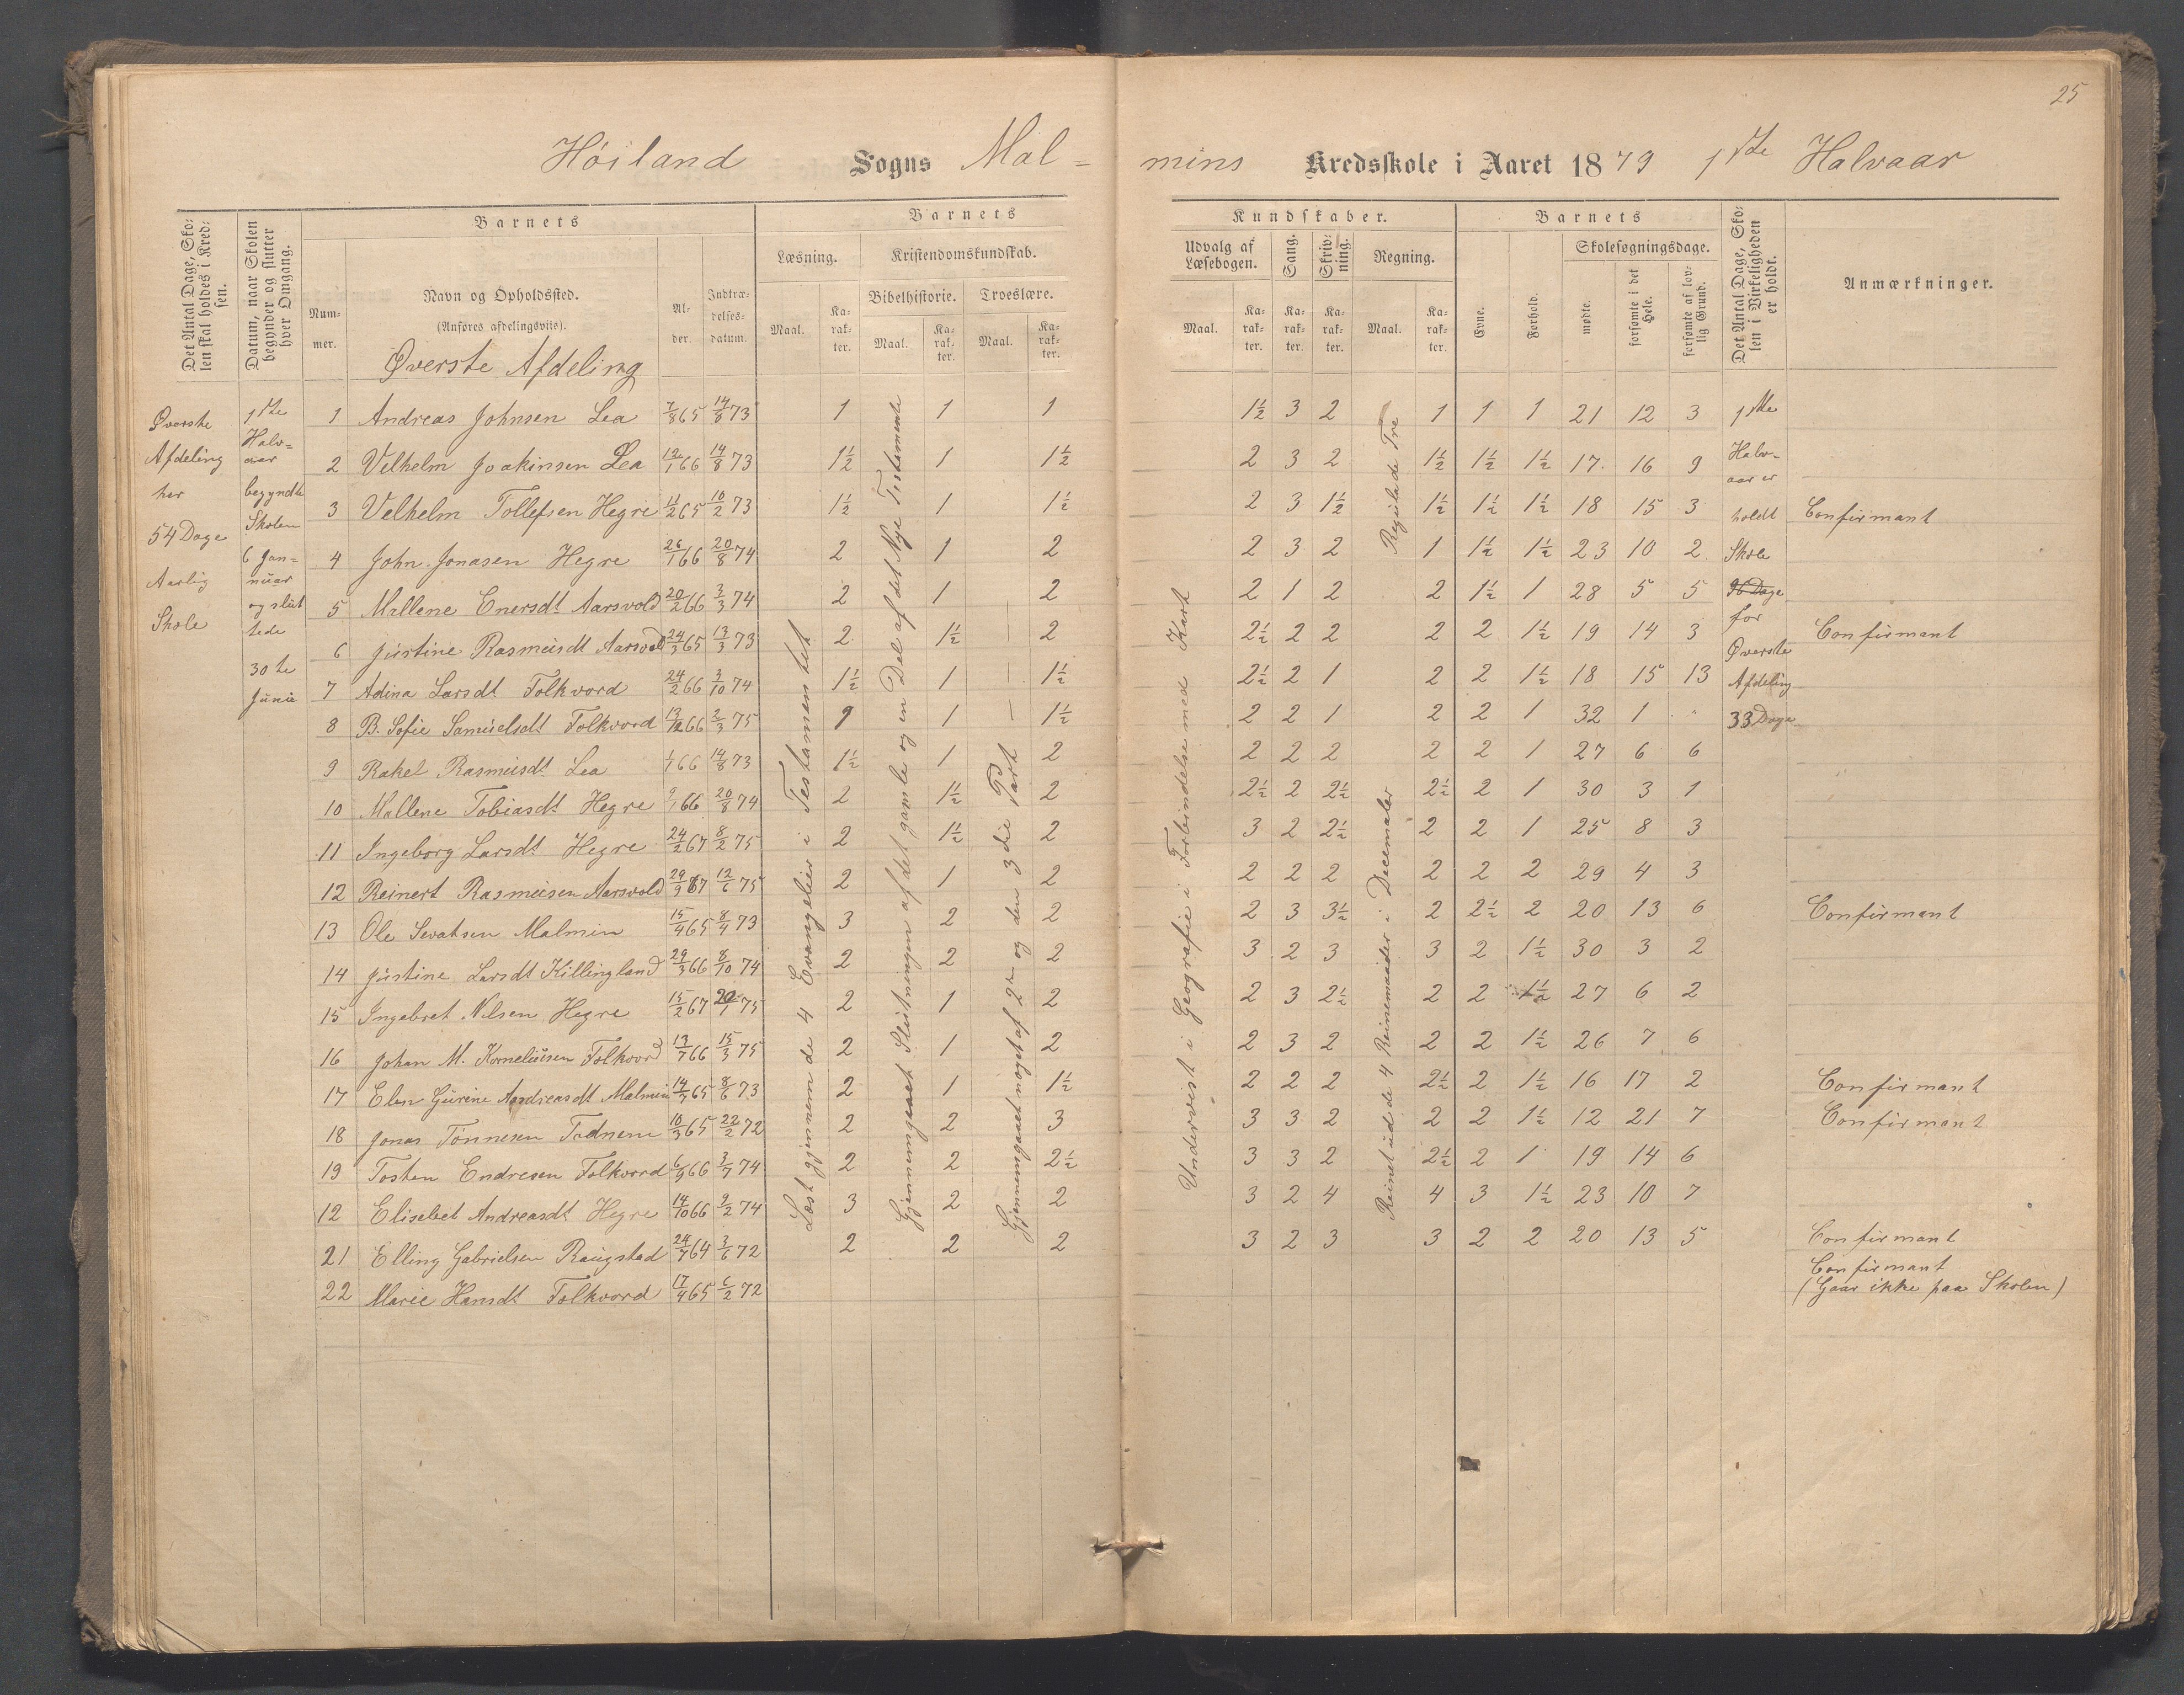 25
Höiland Sogns Mal-
mins Kredsskole i Aaret 1879 1ste Halvaar
Det Antal Dage, Sko-
len skal holdes i Kred-
sen.
Datum, naar Skolen
begynder og slutter
hver Omgang.
Barnets
Num-
mer.
Navn og Opholdssted.
(Anføres afdelingsviis).
Al-
der.
Indtræ-
delses-
datum.
Barnets
Læsning.
Maal.
Ka-
rak-
ter.
Kristendomskundskab.
Bibelhistorie.
Maal.
Ka-
rak-
ter.
Troeslære.
Maal.
Ka-
rak-
ter.
Kundskaber.
Udvalg af
Læsebogen.
Maal.
Ka-
rak-
ter.
Sang.
Ka-
rak-
ter.
Skriv-
ning.
Ka-
rak-
ter.
Regning.
Maal.
Ka-
rak-
ter.
Barnets
Evne.
Forhold.
Skolesøgningsdage.
mødte.
forsømte i det
Hele.
forsømte af lov-
lig Grund.
Det Antal Dage, Sko-
len i Virkeligheden
er holdt.
Anmærkninger.
Øverste Afdeling
Øverste
Afdeling
har
54 Dage
Aarlig
Skole
1ste
Halv-
aar
begyndte
Skolen
6 Jan-
nuar
og slut
tede
30te
Junie
Læst gjennem de 4 Evangelier i Testamentet
Gjennemgaaet Slutningen af det gamle og en Del af det Nye Testamente
Gjennemgaaet noget af 2den og den 3die Part
Undervist i Geografie i Forbindelse med Kart
Reinet ud de 4 Reinemaader i Decemaler
Regulade Tre
1 Andreas Johnsen Lea 7/8 65 14/8 73 1 1 1 1½ 3 2 1 1 1 21 12 3
2 Velhelm Joakinsen Lea 12/1 66 14/8 73 1½ 1 1½ 2 3 2 1½ 1½ 1½ 17 16 9
3 Velhelm Tollefsen Hegre 11/2 65 10/2 73 1½ 1 1½ 2 3 1½ 1½ 1½ 1½ 18 15 3 Confirmant
4 John Jonasen Hegre 26/1 66 20/8 74 2 1 2 2 3 2 1 1½ 1½ 23 10 2
5 Mallene Enersdt Aarsvold 20/2 66 3/3 74 2 1 2 2 1 2 2 1½ 1 28 5 5
6 Justine Rasmusdt Aarsvold 24/3 65 13/3 73 2 1½ — 2 2½ 2 2 2 2 1½ 19 14 3 Confirmant
7 Adina Larsdt Folkvord 24/2 66 3/10 74 1½ 1 — 1½ 2½ 2 1 2 2 1½ 18 15 13
8 B. Sofie Samuelsdt Folkvord 13/12 66 2/3 75 1 — 1½ 2 2 1 2 2 1 32 1 "
9 Rakel Rasmusdt Lea 1/1 66 14/8 73 1½ 1 2 2 2 2 2 2 1 27 6 6
10 Mallene Tobiasdt Hegre 9/1 66 20/8 74 2 1½ 2 2½ 2 2½ 2½ 2 1 30 3 1
11 Ingeborg Larsdt Hegre 24/2 67 8/2 75 2 1½ 2 3 2 2½ 2 2 1 25 8 3
12 Reinert Rasmusen Aarsvold 29/9 67 12/6 75 2 1 2 2 2 2 2 2 2 29 4 3
13 Ole Sivatsen Malmin 15/4 65 8/4 73 3 2 2 2 3 3½ 2 2½ 2 20 13 6 Confirmant
14 Justine Larsdt Killingland 29/3 66 8/10 74 2 2 2 3 2 3 3 2 1½ 30 3 2
15 Ingebret Nilsen Hegre 15/2 67 20/1 75 2 1 2 2 3 2½ 2 2 1½ 27 6 2
16 Johan M. Korneliusen Folkvord 13/7 66 15/3 75 2 1 2 2 3 2 2 2 1½ 26 7 6
17 Elen Gurine Aandreasdt Malmin 14/7 65 8/6 73 2 1 1½ 2 2 2 2½ 2 1½ 16 17 2 Confirmant
18 Jonas Tönnesen Tednem 10/3 65 22/2 72 2 2 3 3 3 2 2 2 1½ 12 21 7 Confirmant
19 Tosten Endresen Folkvord 6/9 66 3/7 74 2 2 2½ 3 3 2 2½ 2 1 19 14 6
12 Elisebet Andreasdt Hegre 14/10 66 2/2 74 3 2 2 3 2 4 4 3 1½ 23 10 7
21 Elling Gabrielsen Raugstad 24/7 64 3/6 72 2 2 2 3 2 3 3 2 2 20 13 5 Confirmant
22 Marie Hansdt Folkvord 17/4 65 6/2 72 Confirmant
(Gaar ikke paa Skolen)
1ste
Halv-
aar er
holdt
Skole
36 Dage
for
Øverste
Afdeling
33 Dage